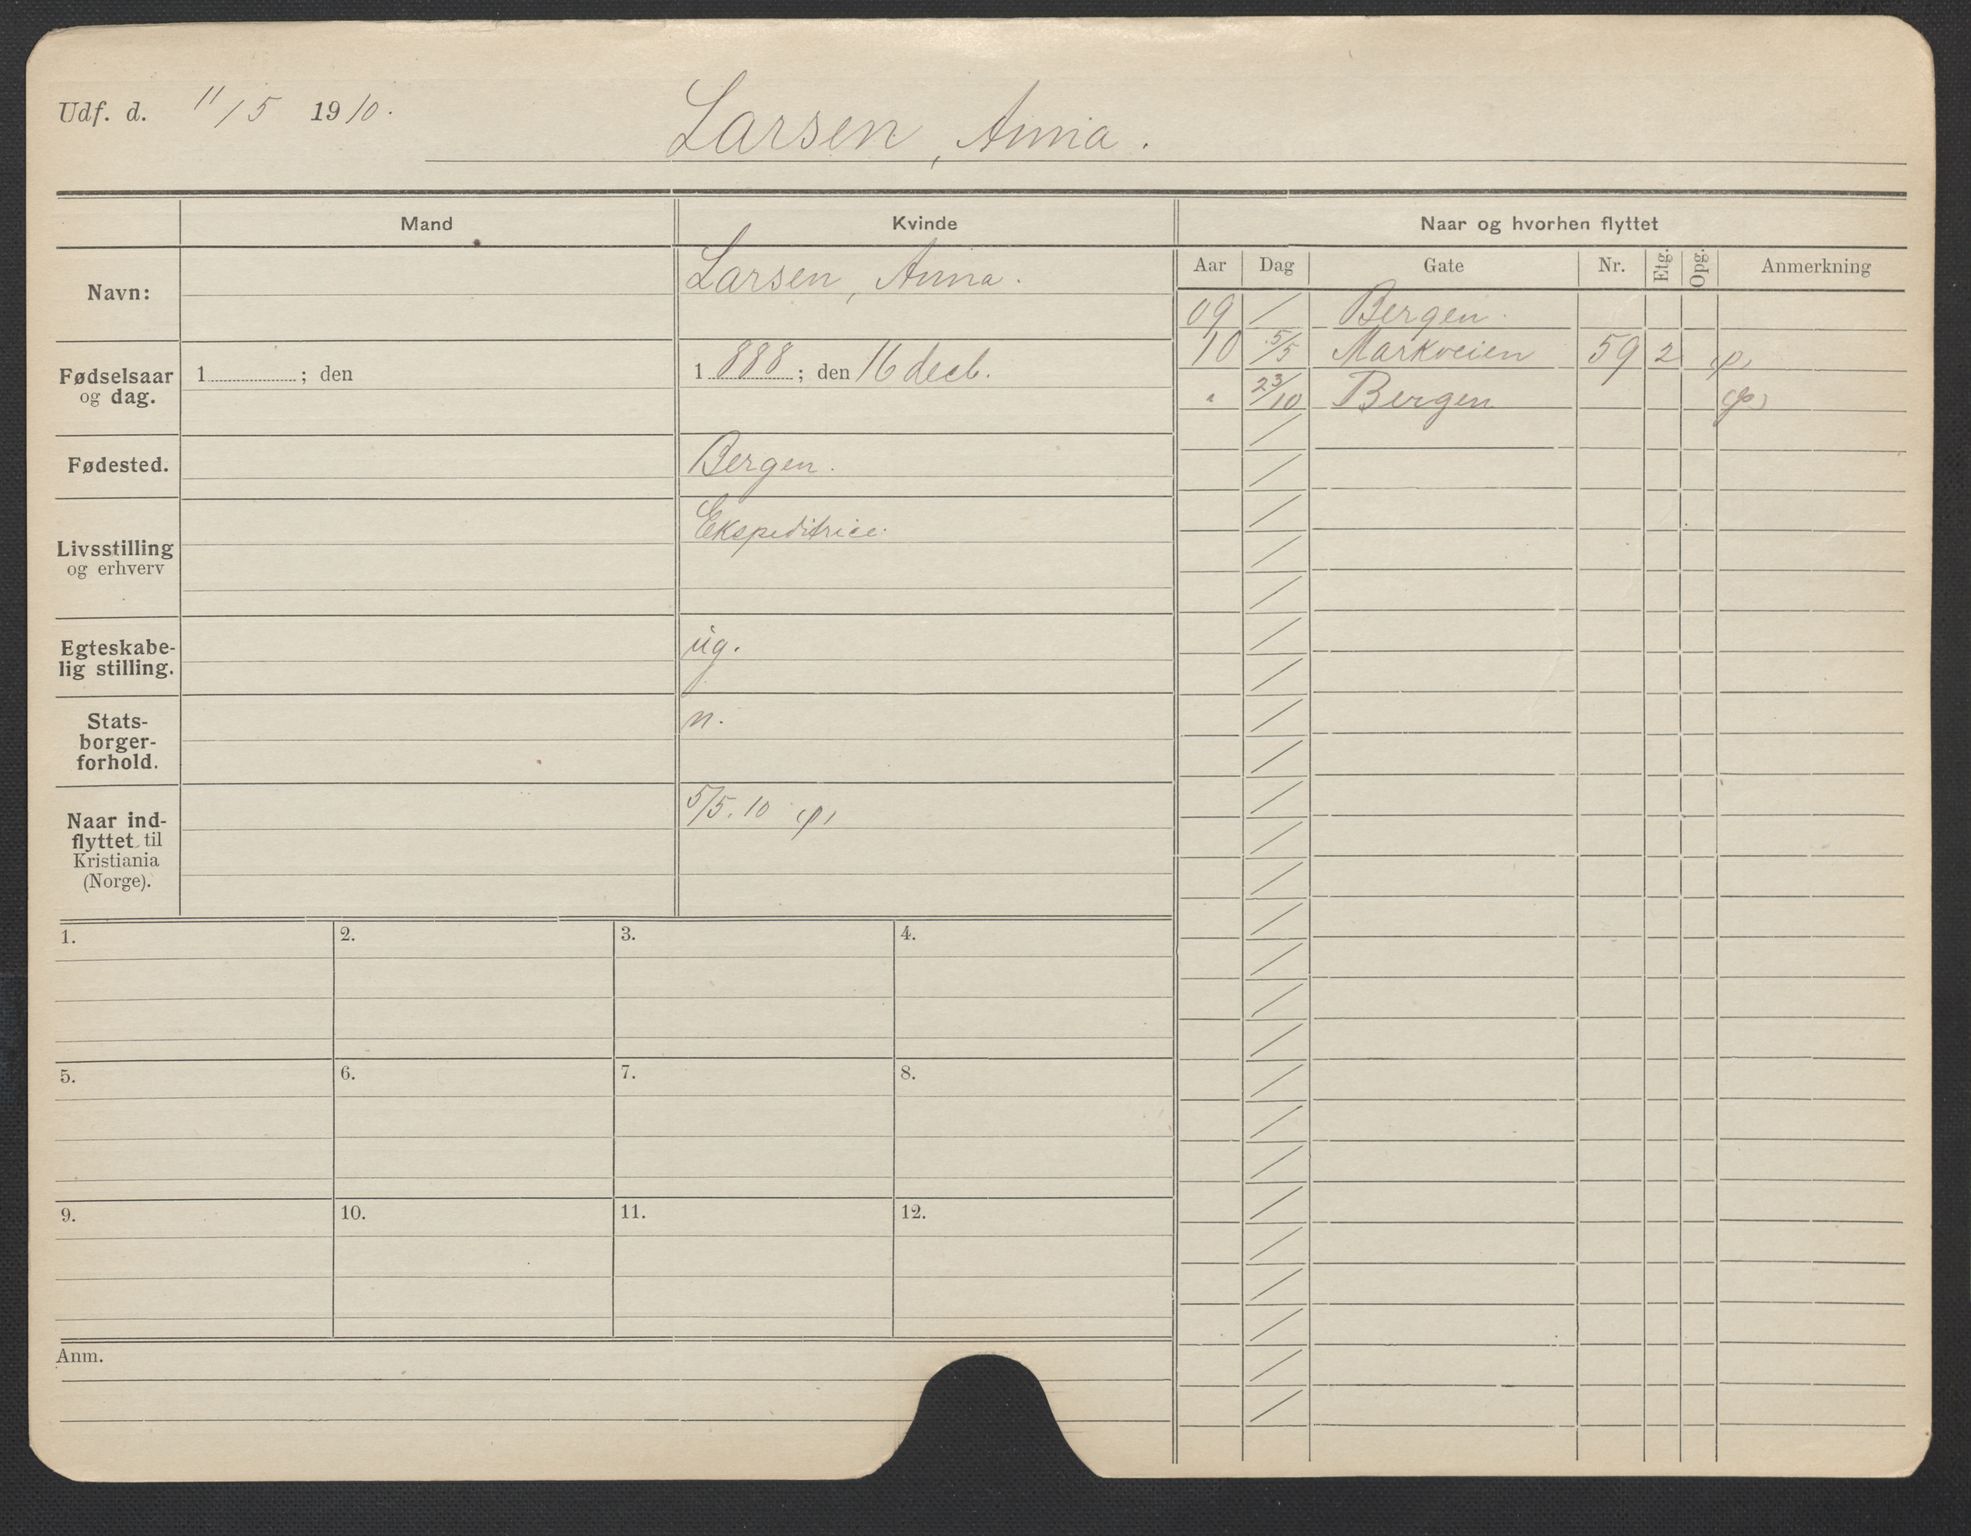 Udf. d. 11/5 1910.
Larsen, Anna.
Mand
Kvinde
Naar og hvorhen flyttet
Navn:
Larsen, Anna.
Aar Dag Gate Nr. Etg. Opg. Anmerkning
09 / Bergen.
10 5/5 Markveien 59 2
" 23/10 Bergen
Fødselsaar og dag.
1 ; den
1888; den 16 decb.
Fødested.
Bergen.
Livsstilling og erhverv
Ekspeditrice.
Egteskabe-
lig stilling.
ug.
Stats-
borger-
forhold.
n.
Naar ind-
flyttet til
Kristiania
(Norge).
5/5.10
1. 2. 3. 4.
5. 6. 7. 8.
9. 10. 11. 12.
Anm.